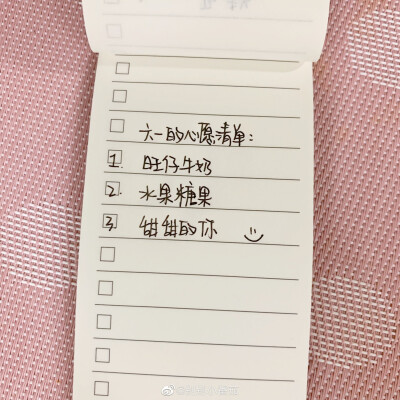 六一的心愿清单:
1. 旺仔牛奶
2. 水果糖果
3. 甜甜的你